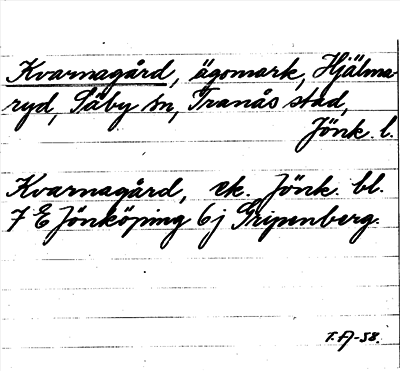 Kvarnagård, ägomark, Hjälma-
ryd, Säby sn, Tranås stad,
Jönk. l.
Kvarnagård, ek. Jönk. bl.
7 E Jönköping 6 j Gripenberg.
T.A-58.